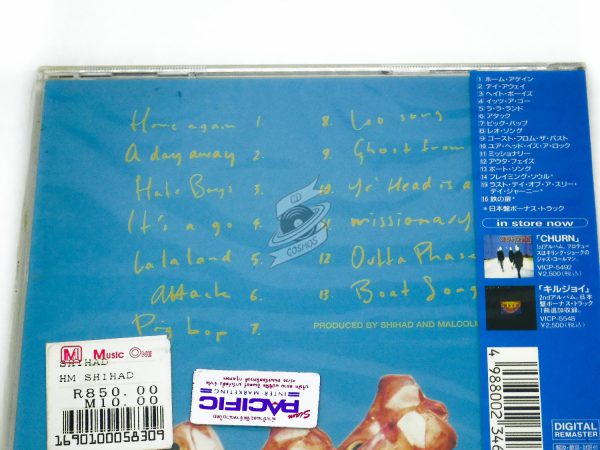 Home again 1.
A day away 2.
Hate Boys 3.
It's a go 4.
La la land 5.
Attack 6.
Pig bop 7.
8. Leo song
9. Ghost from
10. Ye' Head is a
missionary
12 Outta Phase
13. Boat Song
PRODUCED BY SHIHAD AND MALCOL
CD
COSMOS
1 ホーム・アゲイン
2 デイ・アウェイ
3 ヘイト・ボーイズ
4 イッツ・ア・ゴー
5 ラ・ラ・ランド
6 アタック
7 ピッグ・バップ
8 レオ・ソング
9 ゴースト・フロム・ザ・パスト
10 ユア・ヘッド・イズ・ア・ロック
11 ミッショナリー
12 アウタ・フェイズ
13 ボート・ソング
14 フレイミング・ソウル*
15 ラスト・デイ・オブ・ア・スリー・
デイ・ジャーニー*
16 鉄の扉*
*日本盤ボーナス・トラック
in store now
「CHURN」
1stアルバム。プロデュー
スはキリング・ジョークの
ジャズ・コールマン。
VICP-5492
¥2,500(税込)
「キルジョイ」
2ndアルバム。日本
盤ボーナス・トラック
1曲追加収録。
VICP-5548
¥2,500(税込)
M Music One
SHIHAD
HM SHIHAD
R850.00
M10.00
1690100058309
Siam
PACIFIC
INTER MARKETING
4988002346
DIGITAL
REMASTER